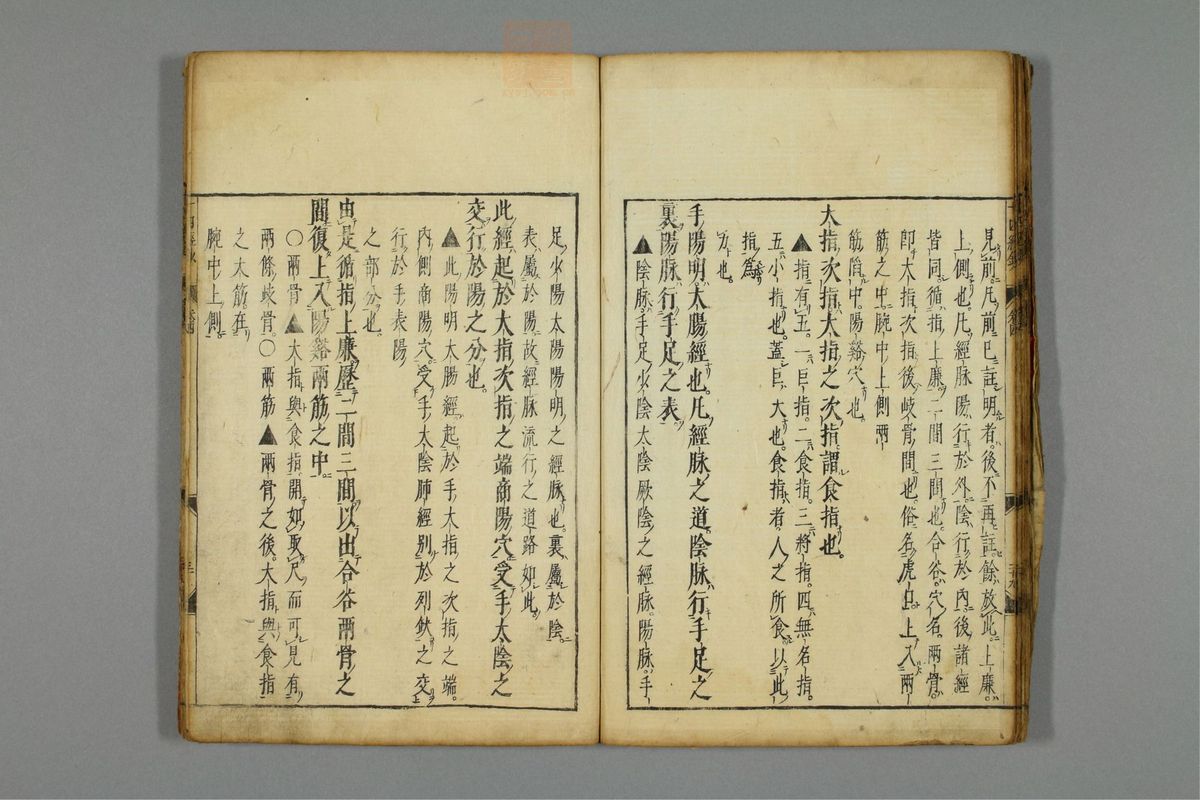 見前凡前已註明者後不再註餘放此上廉
上側也凡經脉陽行於外陰行於內後諸經
皆同循指上廉二間三間也合谷穴名兩骨
即大指次指後岐骨間也俗名虎口上入兩
筋之中腕中上側兩
筋陷中陽谿穴也
大指次指大指之次指謂食指也
▲指有五一巨指二食指三將指四無名指
五小指也蓋巨大也食指者人之所食以此
指為
力也
手陽明大腸經也凡經脉之道陰脉行手足之
裏陽脉行手足之表
▲陰脉手足少陰太陰厥陰之經脉陽脉手
足少陽太陽陽明之經脉也裏屬於陰
表屬於陽故經脉流行之道路如此
此經起於大指次指之端商陽穴受手太陰之
交行於陽之分也
▲此陽明大腸經起於手大指之次指之端
內側商陽穴受手太陰肺經別於列缺之交
行於手表陽
之部分也
由是循指上廉歷二間三間以出合谷兩骨之
間復上入陽谿兩筋之中
○兩骨▲大指與食指開如取尺而可見有
兩條歧骨○兩筋▲兩骨之後大指與食指
之大筋在
腕中上側